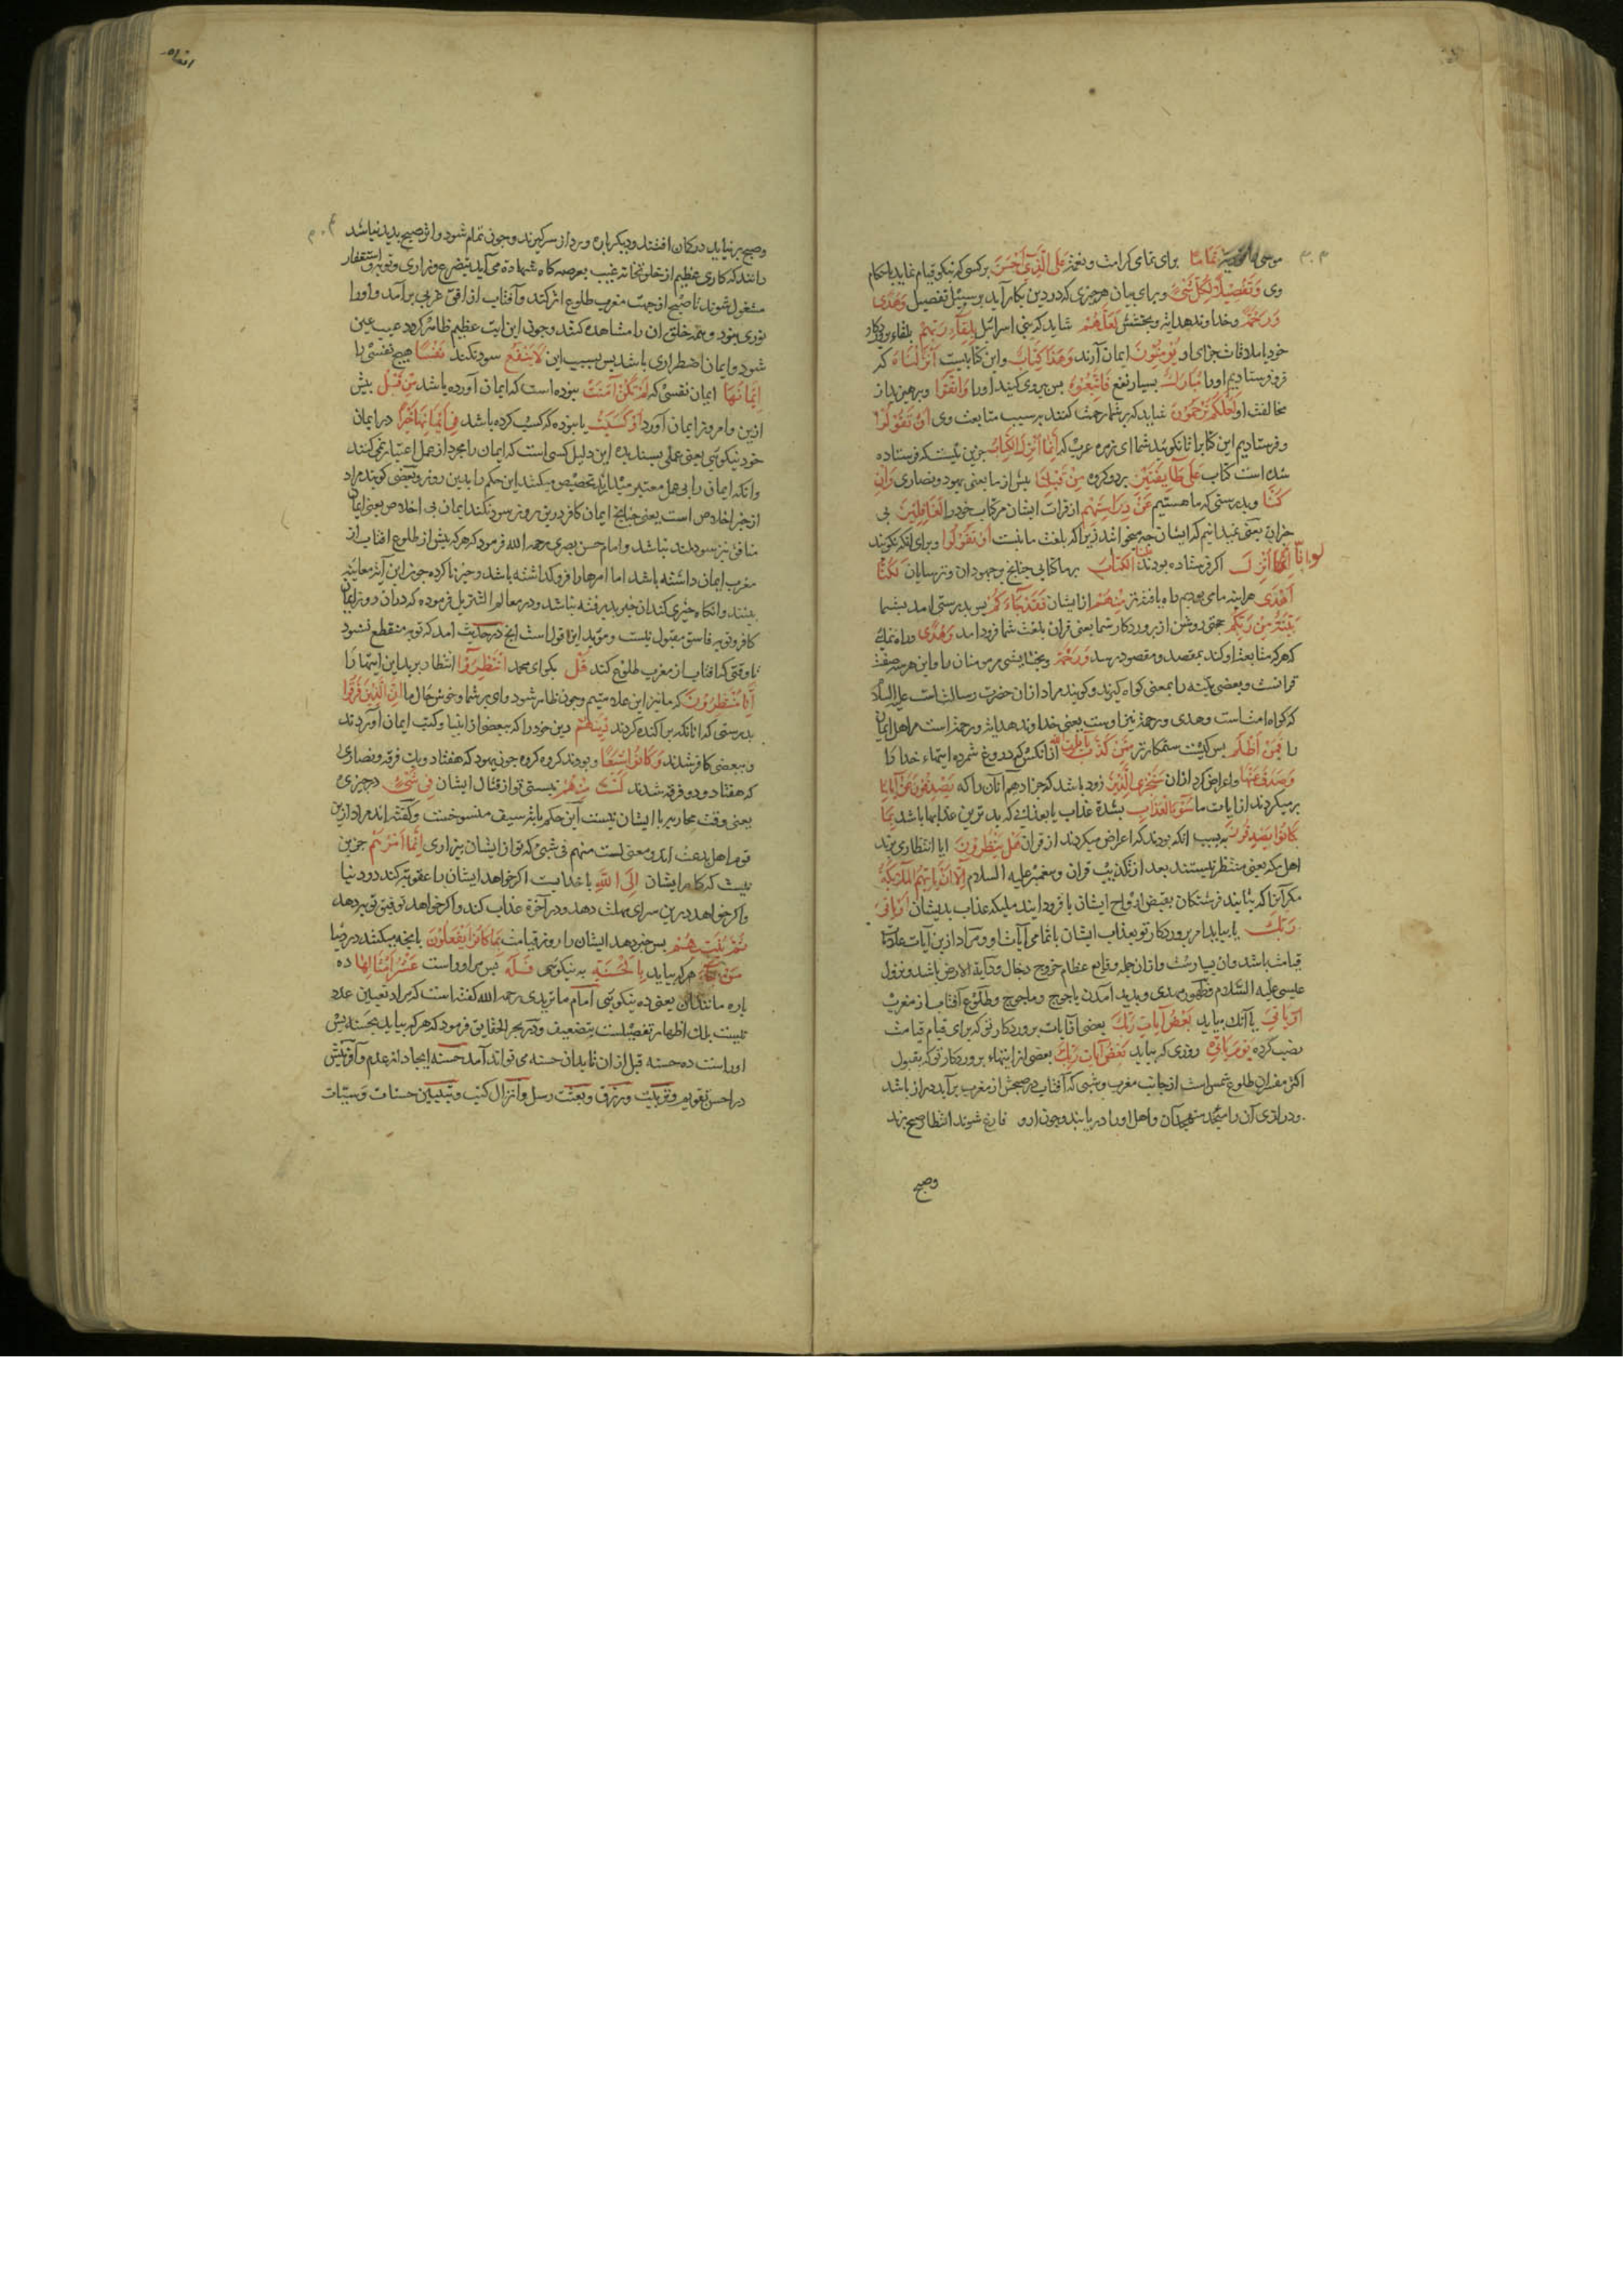 ۳۰۳
موسی تَمَامًا برای تمامی کرامت و نعمت عَلَی الَّذِی أَحْسَنَ بر کسی که نیکو قیام نماید باحکام
وی وَتَفْصِیلًا لِکُلِّ شَیْءٍ و برای بیان هر چیزی که در دین بکار آید بر سبیل تفصیل وَهُدًی
وَرَحْمَةً و خداوند هدایت و بخشش لَعَلَّهُمْ شاید که بنی اسرائیل بِلِقَاءِ رَبِّهِمْ بلقاء پروردکار
خود یا ملاقات جزای او یُؤْمِنُونَ ایمان آرند وَهَذَا کِتَابٌ و این کتابیست أَنْزَلْنَاهُ که
فرو فرستادیم او را مُبَارَكٌ بسیار نفع فَاتَّبِعُوهُ پس پیروی کنید او را وَاتَّقُوا و بپرهیزید از
مخالفت او لَعَلَّکُمْ تُرْحَمُونَ شاید که بر شما رحمت کنند بسبب متابعت وی أَنْ تَقُولُوا
و فرستادیم این کتابرا تا نکوئید شما ای زمره عرب که إِنَّمَا أُنْزِلَ الْکِتَابُ جزین نیست که فرستاده
شده است کتاب عَلَی طَائِفَتَیْنِ بر دو کروه مِنْ قَبْلِنَا پیش از ما یعنی یهود و نصاری وَإِنْ
کُنَّا و بدرستی که ما هستیم عَنْ دِرَاسَتِهِمْ از قرات ایشان مر کتاب خود را لَغَافِلِینَ بی
خبران یعنی نمیدانیم که ایشان چه میخوانند زیرا که بلغت ما نیست أَوْ تَقُولُوا و برای آنکه نکویند
لَوْ أَنَّا أُنْزِلَ اکر فرستاده بودند عَلَیْنَا الْکِتَابُ بر ما کتابی چنانچه بر جهودان و ترسایان لَکُنَّا
أَهْدَی هر اینه ما می بودیم راه یافته تر مِنْهُمْ از ایشان فَقَدْ جَاءَکُمْ پس بدرستی امد بشما
بَیِّنَةٌ مِنْ رَبِّکُمْ حجتی روشن از پروردکار شما یعنی قران بلغت شما فرود امد وَهُدًی و راه نمائی
که هر که متابعت او کند بمقصد و مقصود برسد وَرَحْمَةٌ و بخشایشی مر مومنان را و این هر سه صفت
قرانست و بعضی بینه را بمعنی کواه کیرند و کویند مراد ازان حضرت رسالتست علیه السلام
که کواه امتست و هدی و رحمة نیز اوست یعنی خداوند هدایت و رحمت است مر اهل ایمان
را فَمَنْ أَظْلَمُ پس کیست ستمکارتر مِمَّنْ کَذَّبَ بِآیَاتِ اللَّهِ از انکس که دروغ شمرد ایتهاء خدا را
وَصَدَفَ عَنْهَا و اعراض کرد ازان سَنَجْزِی الَّذِینَ زود باشد که جزا دهیم آنان را که یَصْدِفُونَ عَنْ آیَاتِنَا
برمیکردند از ایات ما سُوءَ الْعَذَابِ بشدة عذاب یا بعذابی که بدترین عذابها باشد بِمَا
کَانُوا یَصْدِفُونَ بسبب انکه بودند که اعراض میکردند از قران هَلْ یَنْظُرُونَ ایا انتظار می برند
اهل مکه یعنی منتظر نیستند بعد از تکذیب قران و پیغمبر علیه السلام إِلَّا أَنْ تَأْتِیَهُمُ الْمَلَائِکَةُ
مکر آنرا که بیایند فرشتکان بقبض ارواح ایشان یا فرود ایند ملیکه عذاب بدیشان أَوْ یَأْتِیَ
رَبُّكَ یا بیاید امر پروردکار تو بعذاب ایشان یا تمامی آیات او و مراد ازین آیات علامات
قیامت باشد و ان بسیارست و ازان جمله وقایع عظام خروج دجال و دابة الارض باشد و نزول
عیسی علیه السلام و ظهور مهدی و پدید آمدن یاجوج و ماجوج و طلوع آفتاب از مغرب
أَوْ یَأْتِیَ یا آنك بیاید بَعْضُ آیَاتِ رَبِّكَ بعضی از آیات پروردکار تو که برای قیام قیامت
نصب کرده یَوْمَ یَأْتِی روزی که بیاید بَعْضُ آیَاتِ رَبِّكَ بعضی از ایتهاء پروردکار تو که بقول
اکثر مفسران طلوع شمس است از جانب مغرب و شبی که آفتاب در صبحش از مغرب برآید دراز باشد
و درازی آن را متهجدان و اهل اوراد دریابند و چون از ورد فارغ شوند انتظار صبح برند
وصبح
۳۰۴
و صبح برنیاید در کمان افتند و دیکر باره ورد از سر کیرند و چون تمام شود و اثر صبح پدید نباشد
دانند که کاری عظیم از خلوتخانه غیب بعرصه کاه شهادة می آید بتضرع و زاری و توبه و استغفار
مشغول شوند تا صبح از جهت مغرب طلوع اثر کند و آفتاب از افق غربی برآمد و او را
نوری نبود و همه خلق ان را مشاهده کنند و چون این ایت عظیم ظاهر کردد غیب عین
شود و ایمان اضطراری باشد پس بسبب این لَا یَنْفَعُ سود نکند نَفْسًا هیچ نفسی را
إِیمَانُهَا ایمان نفسی که لَمْ تَکُنْ آمَنَتْ نبوده است که ایمان آورده باشد مِنْ قَبْلُ پیش
ازین و امروز ایمان آورد أَوْ کَسَبَتْ یا نبوده که کسب کرده باشد فِی إِیمَانِهَا خَیْرًا در ایمان
خود نیکوئی یعنی عملی پسندیده این دلیل کسی است که ایمان را مجرد از عمل اعتبار نمی کنند
و انکه ایمان را بی عمل معتبر میدارند تخصیص میکنند این حکم را بدین روز و بعضی کویند مراد
از خیر اخلاص است یعنی چنانچ ایمان کافر درین روز سود نکند ایمان بی اخلاص یعنی ایمان
منافق نیز سودمند نباشد و امام حسن بصری رحمه الله فرمود که هر که پیش از طلوع افتاب از
مغرب ایمان داشته باشد اما امرها را فرو کذاشته باشد و خیر ناکرده چون این آیت معاینه
بیند و انکاه خیری کند ان خیر پذیرفته نباشد و در معالم التنزیل فرموده که دران روز ایمان
کافر و توبه فاسق مقبول نیست و موید این قول است انچ در حدیث امد که توبه منقطع نشود
تا وقتی که افتاب از مغرب طلوع کند قُلْ بکو ای محمد انْتَظِرُوا انتظار برید این ایتها را
إِنَّا مُنْتَظِرُونَ که ما نیز این علامتیم و چون ظاهر شود وای بر شما و خوش حال ما إِنَّ الَّذِینَ فَرَّقُوا
بدرستی که انانکه پراکنده کردند دِینَهُمْ دین خود را که ببعضی از انبیا و کتب ایمان آوردند
و ببعضی کافر شدند وَکَانُوا شِیَعًا و بودند کروه کروه چون یهود که هفتاد و یك فرقه و نصاری
که هفتاد و دو فرقه شدند لَسْتَ مِنْهُمْ نیستی تو از قتال ایشان فِی شَیْءٍ در چیزی
یعنی وقت محاربه با ایشان نیست این حکم بایت سیف منسوخست و کفته اند مراد ازین
قوم اهل بدعت اند و معنی لست منهم فی شیء که تو از ایشان بیزاری إِنَّمَا أَمْرُهُمْ جزین
نیست که کار ایشان إِلَی اللَّهِ با خدایست اکر خواهد ایشان را عقوبت کند در دنیا
و اکر خواهد درین سرای مهلت دهد و در آخرة عذاب کند و اکر خواهد توفیق توبه دهد
ثُمَّ یُنَبِّئُهُمْ پس خبر دهد ایشان را روز قیامت بِمَا کَانُوا یَفْعَلُونَ بانچه میکنند در دنیا
مَنْ جَاءَ هر که بیاید بِالْحَسَنَةِ به نیکوئی فَلَهُ پس مر او راست عَشْرُ أَمْثَالِهَا ده
باره مانند ان یعنی ده نیکوئی امام ماتریدی رحمه الله کفته است که مراد تعیین عدد
نیست بلك اظهار تفضیلست بتضعیف و در بحر الحقایق فرمود که هر که بیاید بحسنه پس
او راست ده حسنه قبل ازان تا بدان حسنه می تواند آمد حسنه ایجاد از عدم و آفرینش
در احسن تقویم و تربیت و رزق و بعثت رسل و انزال کتب و تبیین حسنات و سیئات